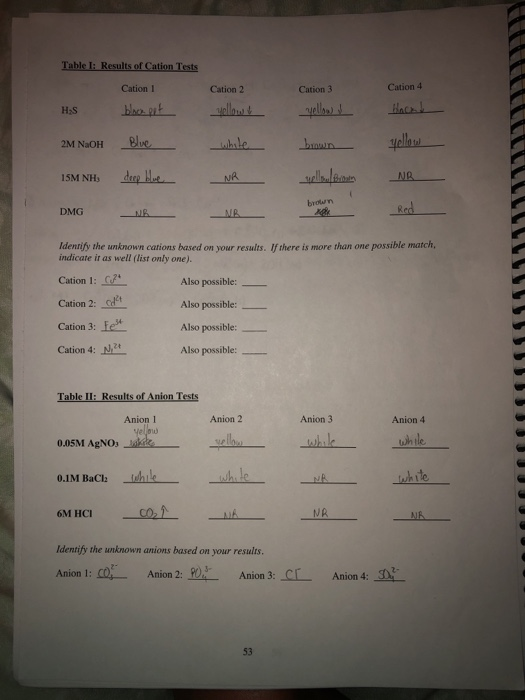 Table I: Results of Cation Tests
Cation 1 Cation 2 Cation 3 Cation 4
H₂S black ppt yellow ↓ yellow ↓ black ↓
2M NaOH Blue white brown yellow
15M NH₃ deep blue NR yellow/Brown NR
DMG NR NR brown Red
Identify the unknown cations based on your results. If there is more than one possible match,
indicate it as well (list only one).
Cation 1: Cu²⁺ Also possible:
Cation 2: Cd²⁺ Also possible:
Cation 3: Fe³⁺ Also possible:
Cation 4: Ni²⁺ Also possible:
Table II: Results of Anion Tests
Anion 1 Anion 2 Anion 3 Anion 4
yellow
0.05M AgNO₃ white yellow white white
0.1M BaCl₂ white white NR white
6M HCl CO₂↑ NR NR NR
Identify the unknown anions based on your results.
Anion 1: CO₃²⁻ Anion 2: PO₄³⁻ Anion 3: Cl⁻ Anion 4: SO₄²⁻
53